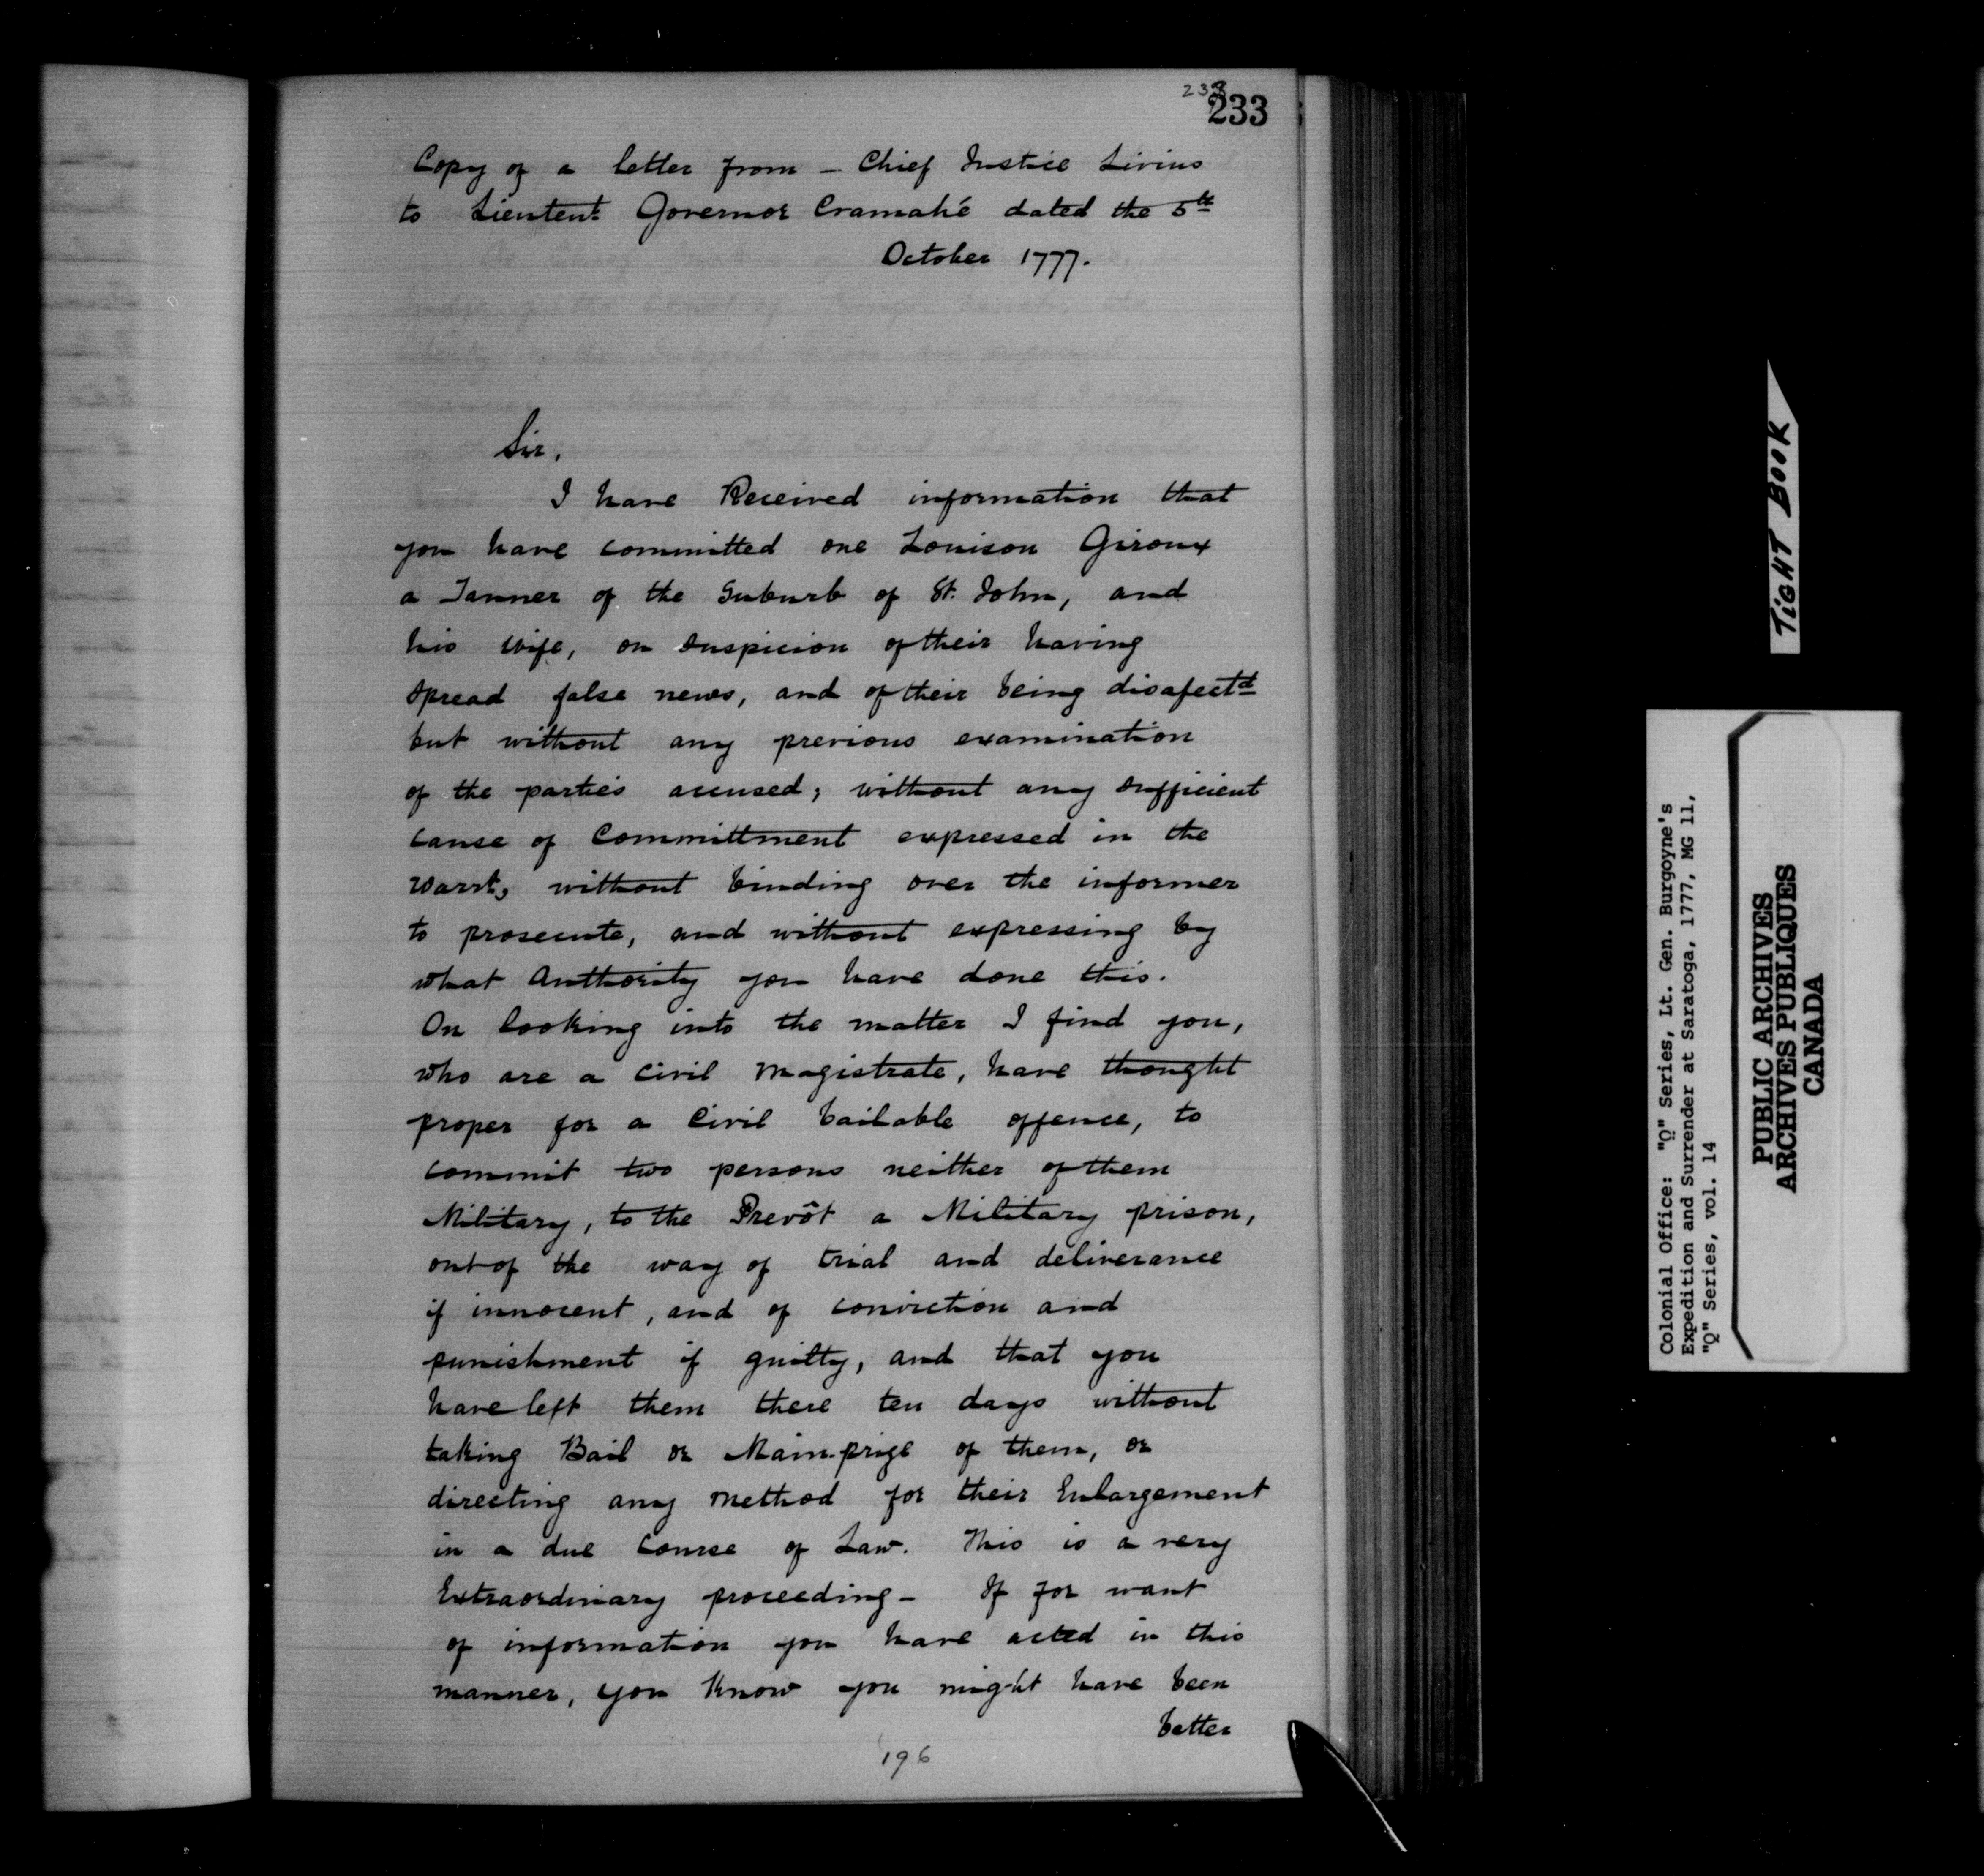 233
233
Copy of a letter from - Chief Justice Livius
to Lieutent Governor Cramahé dated the 5th
October 1777.
Sir,
I have Received information that
you have committed one Louison Giroux
a Tanner of the Suburb of St. John, and
his wife, on suspicion of their having
spread false news, and of their being disafectd
but without any previous examination
of the partiès accused; without any sufficient
cause of Committment expressed in the
warrt, without binding over the informer
to prosecute, and without expressing by
what Authority you have done this.
On looking into the matter I find you,
who are a civil Magistrate, have thought
proper for a Civil bailable offence, to
commit two persons neither of them
Military, to the Prevôt a Military prison,
out of the way of trial and deliverance
if innocent, and of conviction and
punishment if guilty, and that you
have left them there ten days without
taking Bail or Main-prize of them, or
directing any method for their Enlargement
in a due Course of Law. This is a very
Extraordinary proceeding - If for want
of information you have acted in this
manner, you know you might have been
better
196
TiGHT BOOK
Colonial Office: "Q" Series, Lt. Gen. Burgoyne's
Expedition and Surrender at Saratoga, 1777, MG 11,
"Q" Series, vol. 14
PUBLIC ARCHIVES
ARCHIVES PUBLIQUES
CANADA